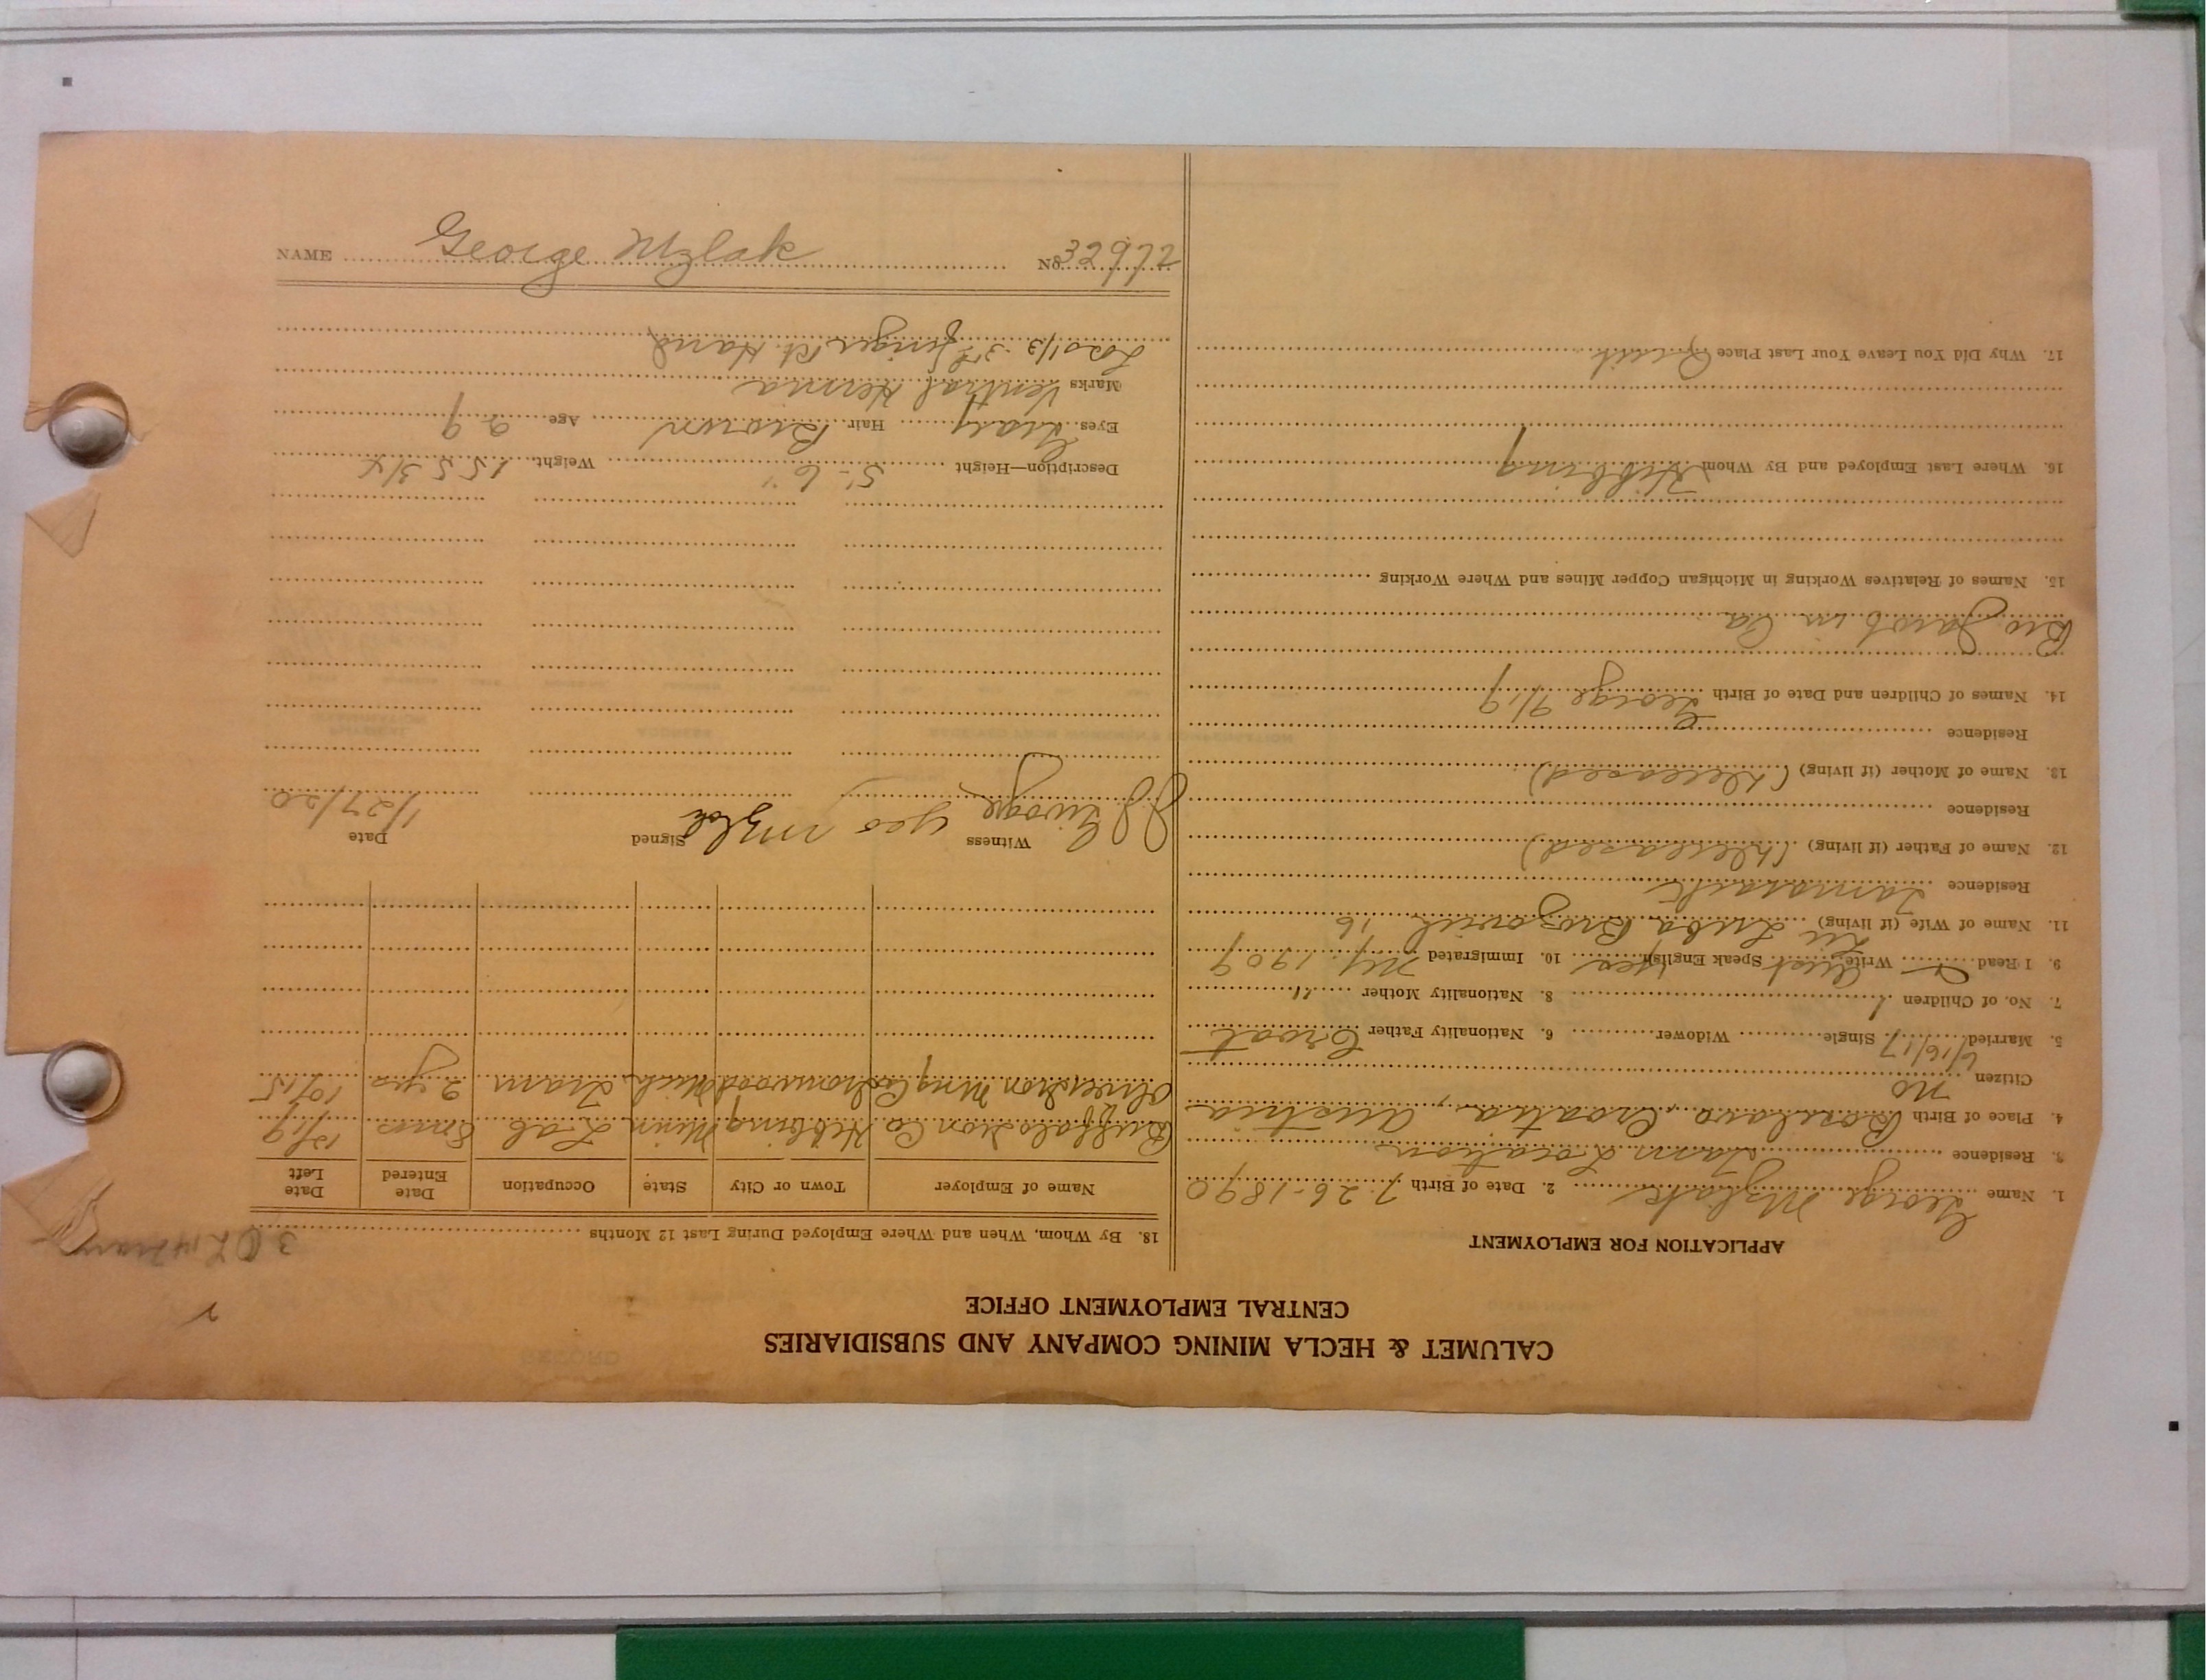 CALUMET & HECLA MINING COMPANY AND SUBSIDIARIES
CENTRAL EMPLOYMENT OFFICE
APPLICATION FOR EMPLOYMENT
1. Name George Mzlak 2. Date of Birth 7-26-1890
3. Residence Tam Location
4. Place of Birth Croatia, Austria
Citizen no
6/16/17
5. Married Single Widower 6. Nationality Father Croat
7. No. of Children 1 8. Nationality Mother "
9. I Read Write Speak English Yes 10. Immigrated 1909
11. Name of Wife (if living) Luba 16
Residence Tamarack
12. Name of Father (if living) (Deceased)
Residence
13. Name of Mother (if living) (Deceased)
Residence
14. Names of Children and Date of Birth George 9/19
Bro. Jacob in Pa.
15. Names of Relatives Working in Michigan Copper Mines and Where Working
16. Where Last Employed and By Whom Hibbing
17. Why Did You Leave Your Last Place Quit
18. By Whom, When and Where Employed During Last 12 Months
Name of Employer Town or City State Occupation Date Entered Date Left
Buffalo Iron Co. Hibbing Minn Lab 8 mos 12/19
Oliver Iron Mng Co Ironwood Mich. Tram 2 yrs 10/15
Witness Signed Date
Geo Mzlak 1/27/20
Description—Height 5'-6" Weight 155 3/4
Eyes Gray Hair Brown Age 29
Marks Ventral Hernia
Loss 1/3 3rd finger Rt. Hand
NAME George Mzlak No. 32972